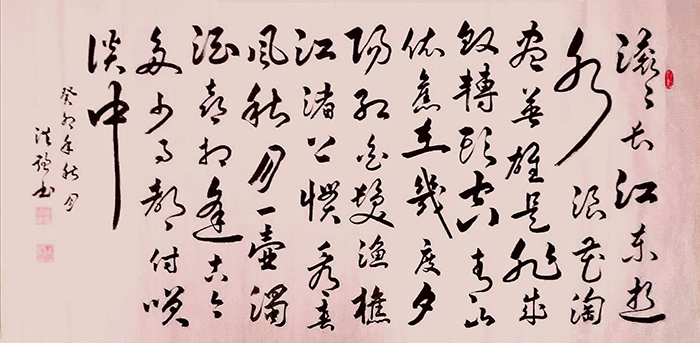 滚々长江东逝
水浪花淘
尽英雄是非成
败轉头空青山
依舊在幾度夕
阳红白髮渔樵
江渚上惯看春
风秋月一壶濁
酒喜相逢古今
多少事都付笑
谈中
癸卯年秋月
书